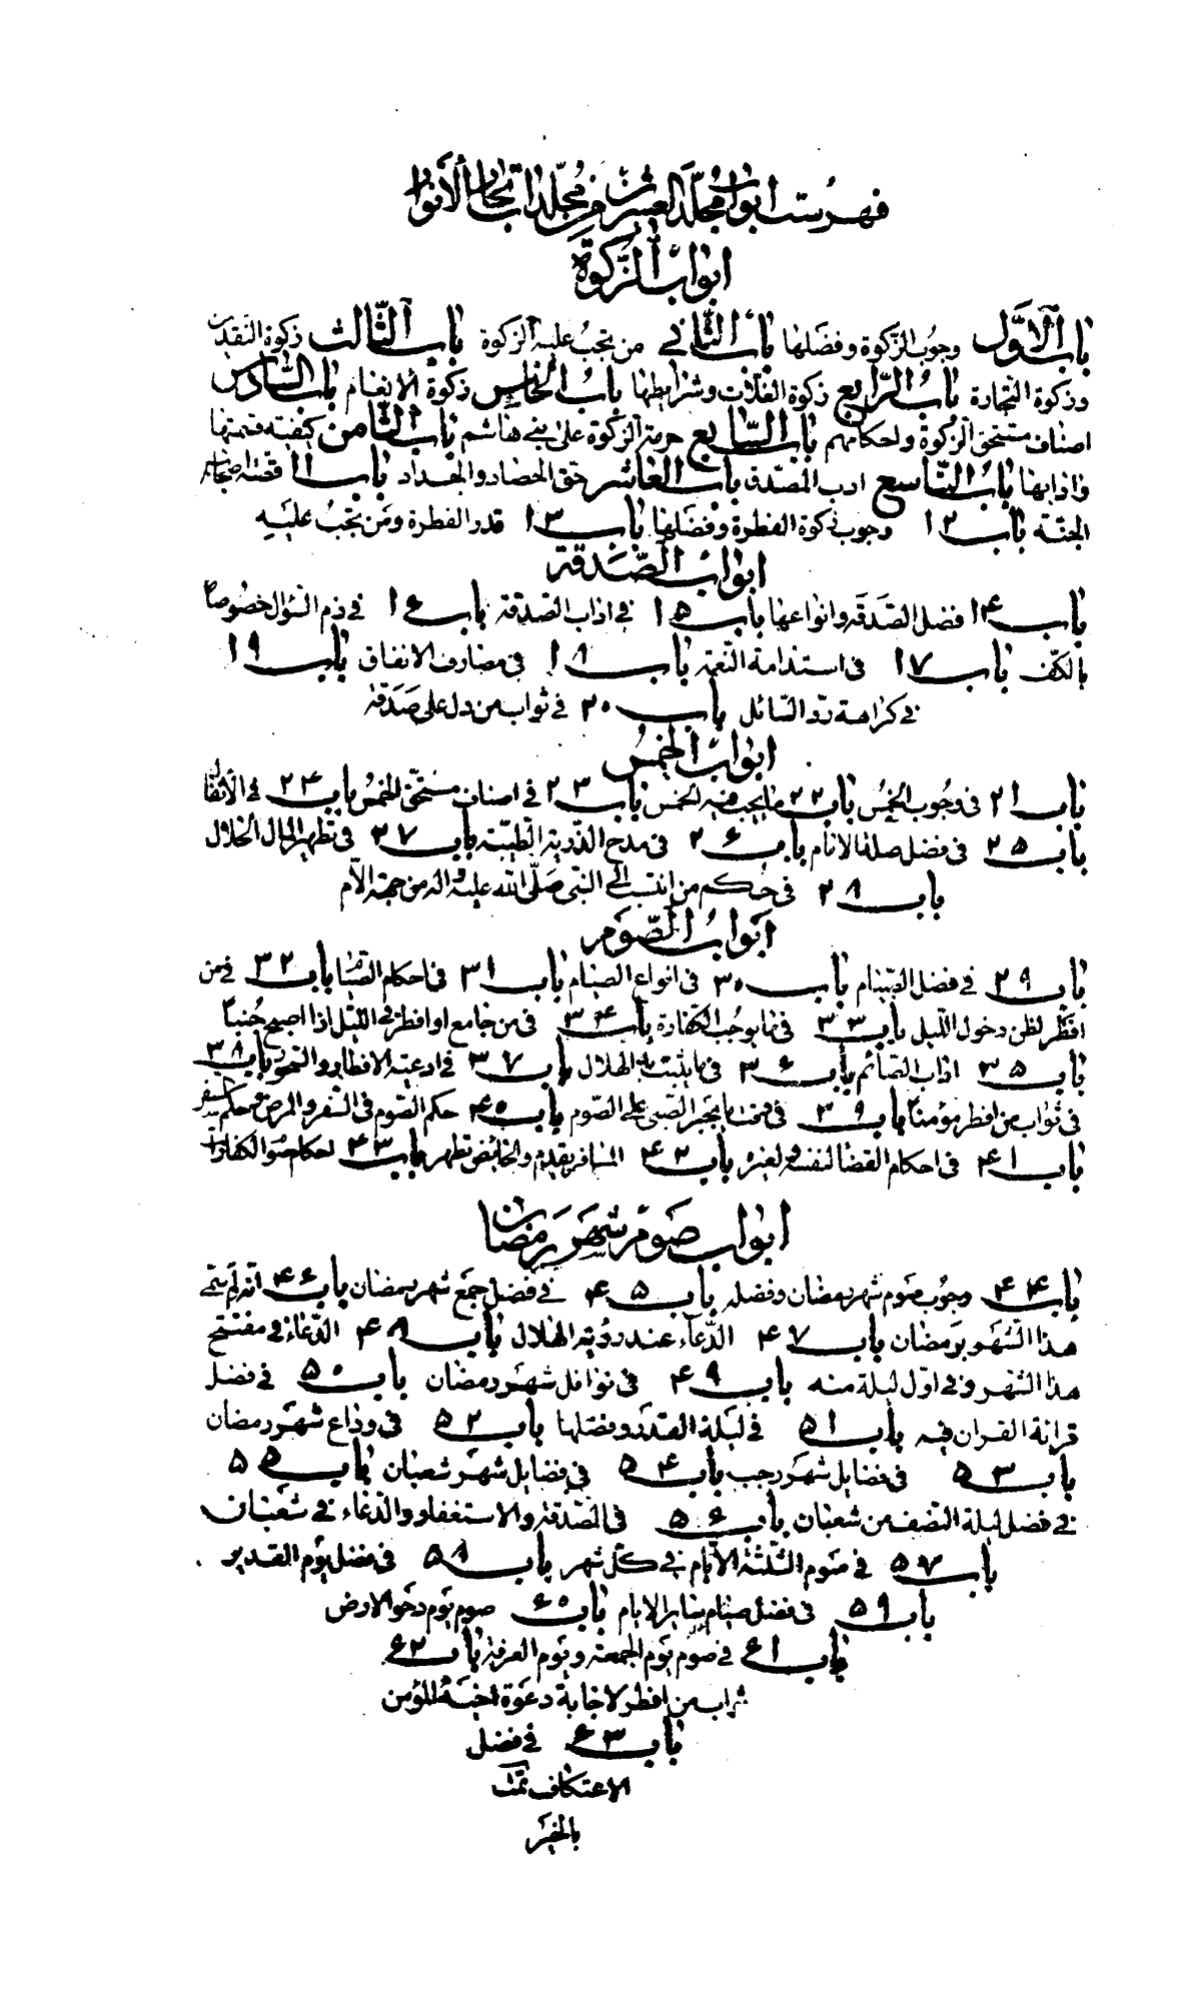 فهرست ابواب مجلد العشرين من مجلدات بحار الأنوار
ابواب الزكوة
باب الاول وجوب الزكوة وفضلها باب الثاني من تجب عليه الزكوة باب الثالث زكوة النقدين
وزكوة التجارة باب الرابع زكوة الغلات وشرايطها باب الخامس زكوة الانعام باب السادس
اصناف مستحق الزكوة واحكامهم باب السابع حرمة الزكوة على بني هاشم باب الثامن كيفية قسمتها
وادابها باب التاسع ادب المصدق باب العاشر حق الحصاد والجداد باب ١١ قصة اصحاب
الجنة باب ١٢ وجوب زكوة الفطرة وفضلها باب ١٣ قدر الفطرة ومن تجب عليه
ابواب الصدقة
باب ١۴ فضل الصدقه وانواعها باب ١۵ في اداب الصدقة باب ١۶ في ذم السؤال خصوصا
بالكف باب ١٧ في استدامة النعمة باب ١٨ في مصارف الانفاق باب ١٩
في كراهة رد السائل باب ٢٠ في ثواب من دل على صدقة
ابواب الخمس
باب ٢١ في وجوب الخمس باب ٢٢ ما يجب فيه الخمس باب ٢٣ في اصناف مستحق الخمس باب ٢۴ في الأنفال
باب ٢۵ في فضل صلة الامام باب ٢۶ في مدح الذرية الطيبة باب ٢٧ في تطهير المال الحلال
باب ٢٨ في حكم من انتسب الى النبي صلى الله عليه واله من جهة الأم
ابواب الصوم
باب ٢٩ في فضل الصيام باب ٣٠ في انواع الصيام باب ٣١ في احكام الصيام باب ٣٢ في من
افطر لظن دخول الليل باب ٣٣ في ما يوجب الكفارة باب ٣۴ في من جامع او افطر في الليل اذا اصبح جنبا
باب ٣۵ اداب الصائم باب ٣۶ في ما يثبت به الهلال باب ٣٧ في ادعية الافطار والسحور باب ٣٨
في ثواب من افطر مؤمنا باب ٣٩ في وقت ما يجبر الصبي على الصوم باب ۴٠ حكم الصوم في السفر والمرض وحكم السفر
باب ۴١ في احكام القضا لنفسه ولغيره باب ۴٢ المسافر يقدم والحايض تطهر باب ۴٣ احكام صوم الكفارات
ابواب صوم شهر رمضان
باب ۴۴ وجوب صوم شهر رمضان وفضله باب ۴۵ في فضل جمع شهر رمضان باب ۴۶ انه لم يسمى
هذا الشهر برمضان باب ۴٧ الدعاء عند روية الهلال باب ۴٨ الدعاء في مفتتح
هذا الشهر وفي اول ليلة منه باب ۴٩ في نوافل شهر رمضان باب ۵٠ في فضل
قرائة القران فيه باب ۵١ في ليلة القدر وفضلها باب ۵٢ في وداع شهر رمضان
باب ۵٣ في فضايل شهر رجب باب ۵۴ في فضايل شهر شعبان باب ۵۵
في فضل ليلة النصف من شعبان باب ۵۶ في الصدقة والاستغفار والدعاء في شعبان
باب ۵٧ في صوم الثلثة الأيام في كل شهر باب ۵٨ في فضل يوم الغدير
باب ۵٩ في فضل صيام ساير الايام باب ۶٠ صوم يوم دحو الارض
باب ۶١ في صوم يوم الجمعة ويوم العرفة باب ۶٢
ثواب من افطر لاجابة دعوة اخيه المؤمن
باب ۶٣ في فضل
الاعتكاف تمت
بالخير